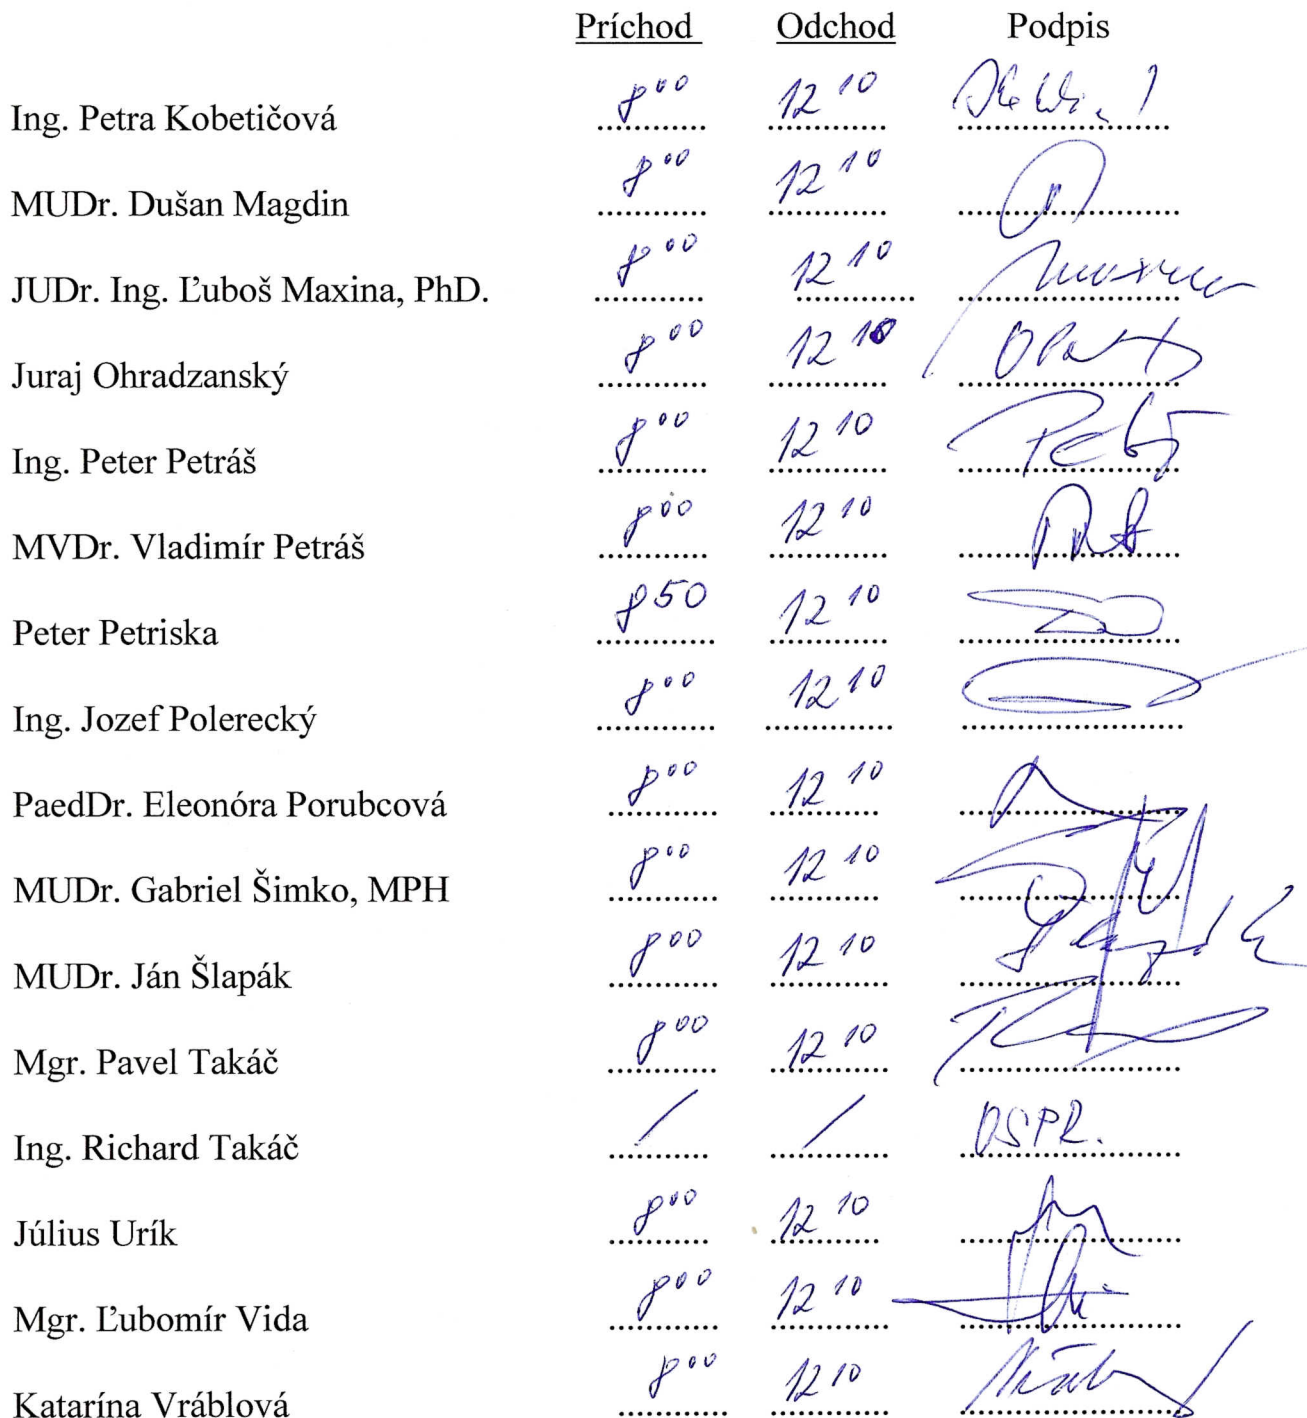 Príchod Odchod Podpis
Ing. Petra Kobetičová 8⁰⁰ 12¹⁰
MUDr. Dušan Magdin 8⁰⁰ 12¹⁰
JUDr. Ing. Ľuboš Maxina, PhD. 8⁰⁰ 12¹⁰
Juraj Ohradzanský 8⁰⁰ 12¹⁰
Ing. Peter Petráš 8⁰⁰ 12¹⁰
MVDr. Vladimír Petráš 8⁰⁰ 12¹⁰
Peter Petriska 850 12¹⁰
Ing. Jozef Polerecký 8⁰⁰ 12¹⁰
PaedDr. Eleonóra Porubcová 8⁰⁰ 12¹⁰
MUDr. Gabriel Šimko, MPH 8⁰⁰ 12¹⁰
MUDr. Ján Šlapák 8⁰⁰ 12¹⁰
Mgr. Pavel Takáč 8⁰⁰ 12¹⁰
Ing. Richard Takáč / / OSPR.
Július Urík 8⁰⁰ 12¹⁰
Mgr. Ľubomír Vida 8⁰⁰ 12¹⁰
Katarína Vráblová 8⁰⁰ 12¹⁰